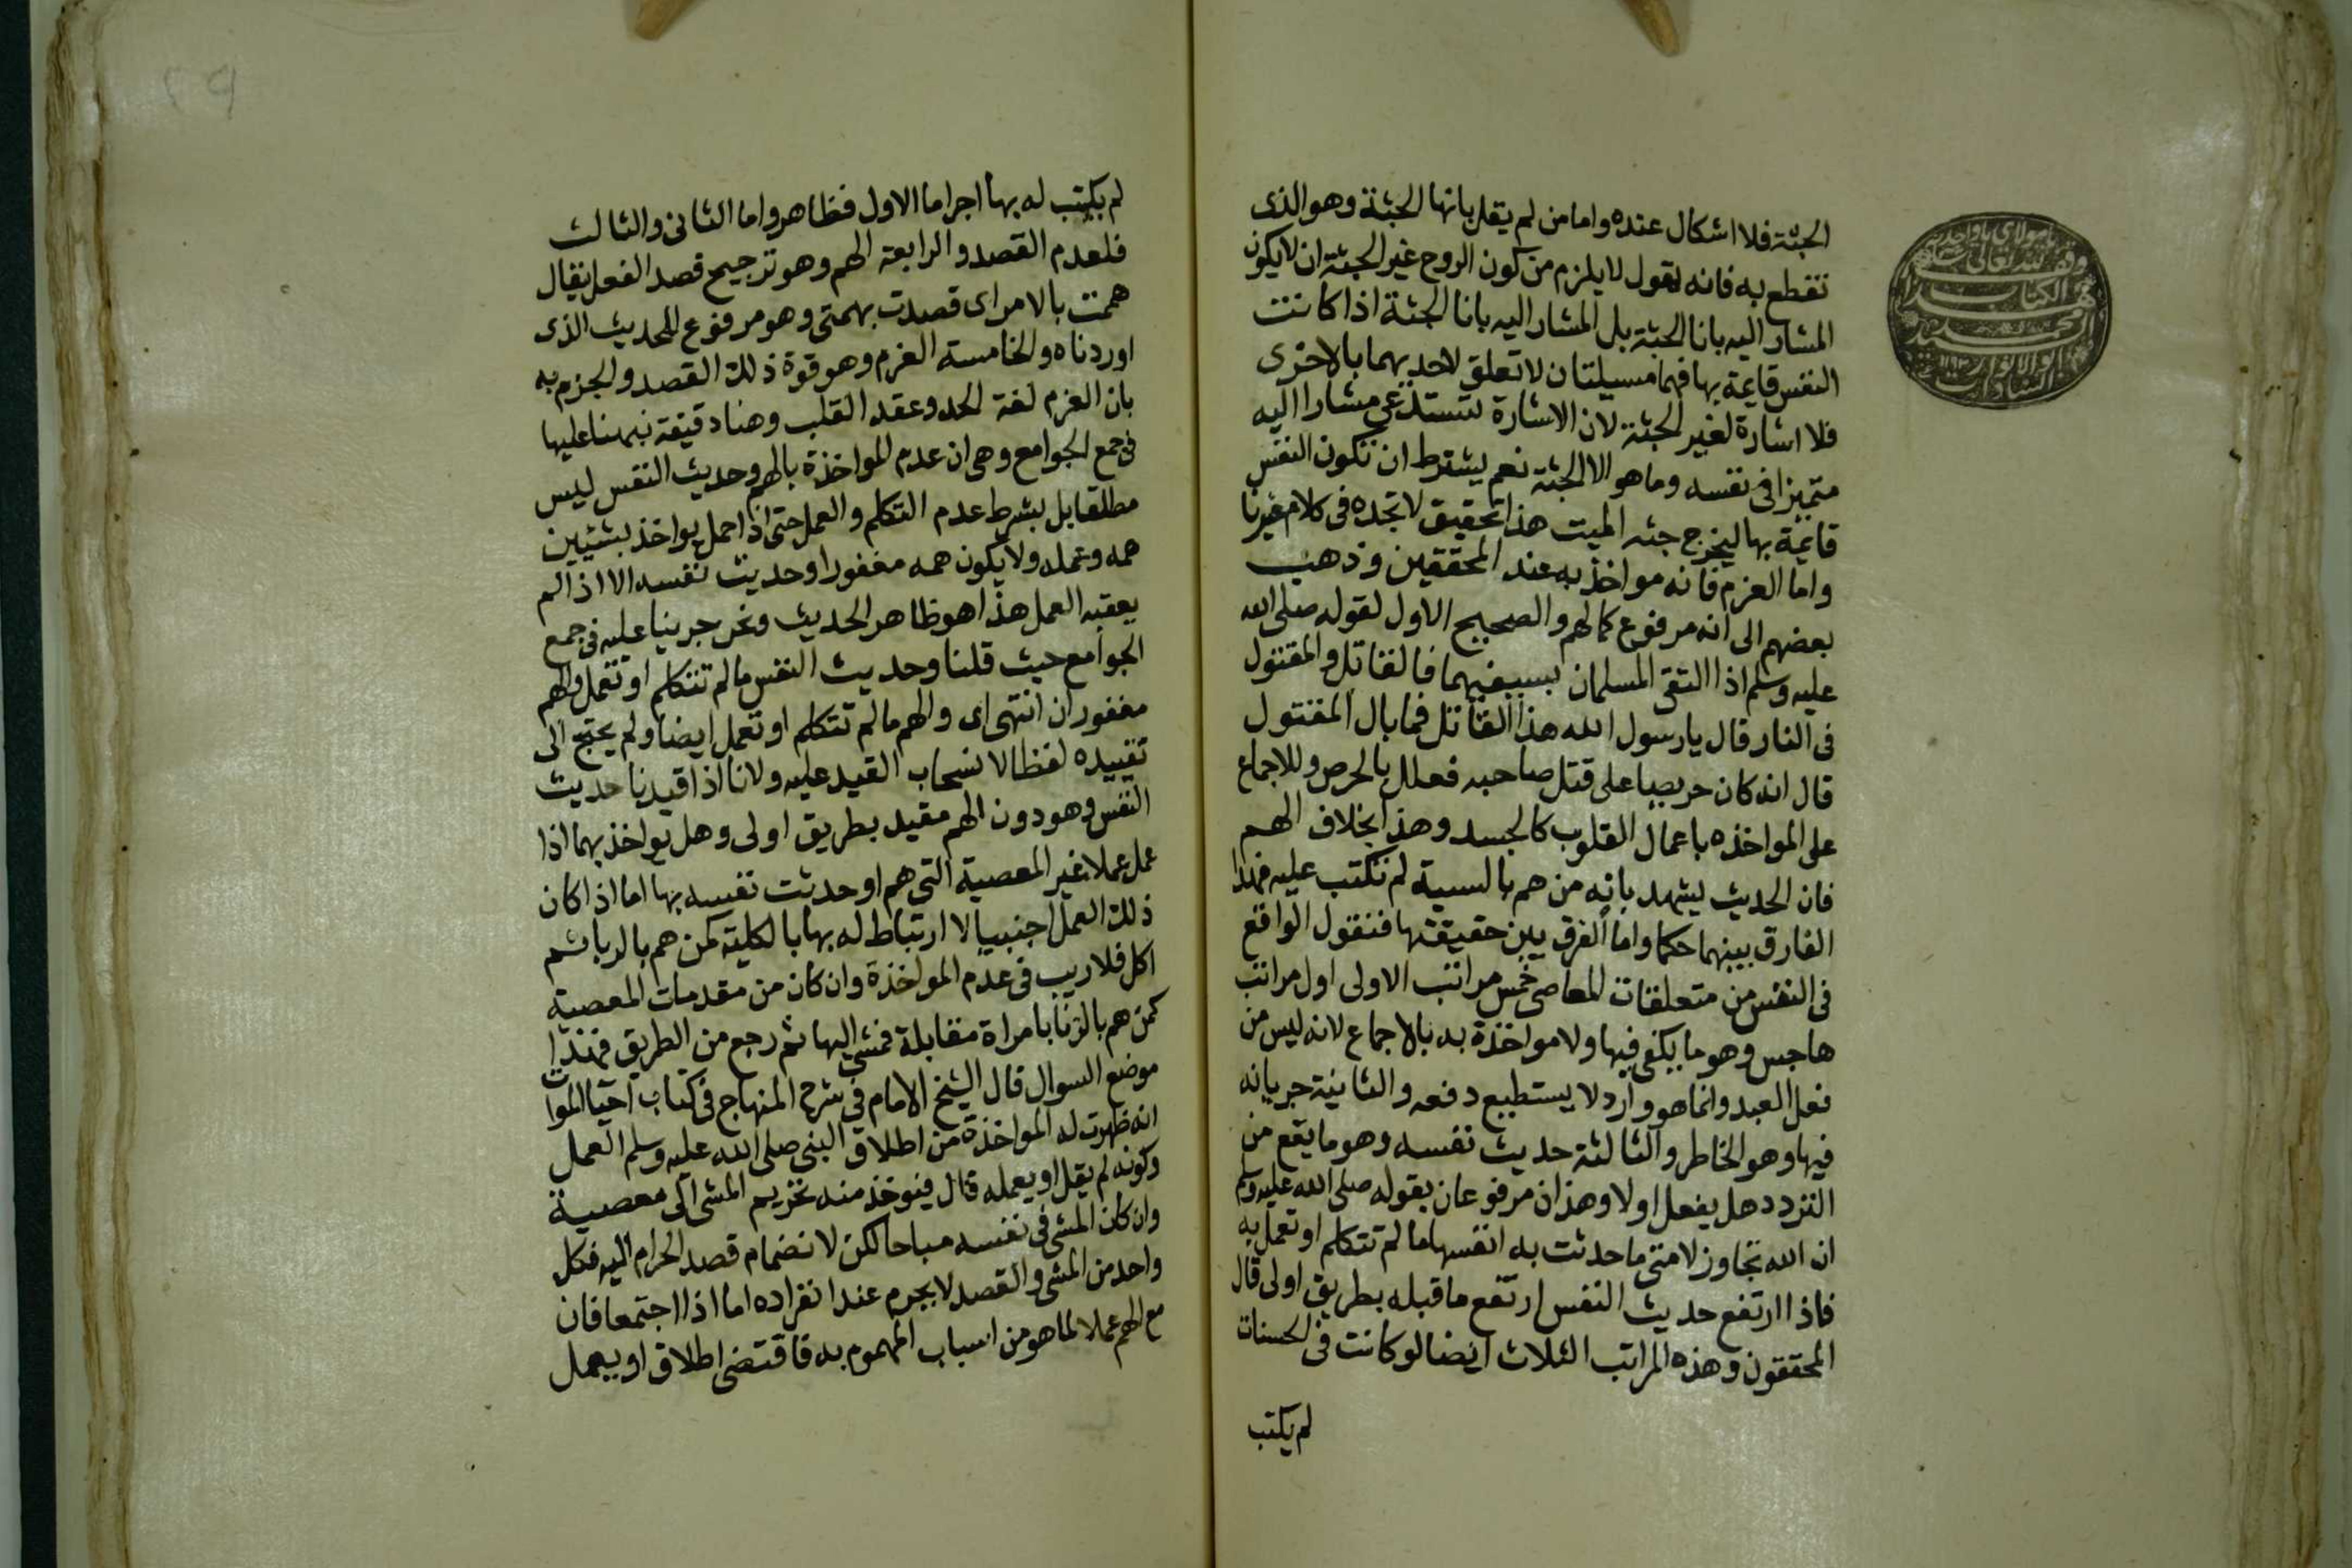 الجثة فلا اشكال عنده واما من لم يقل بانها الجثة وهو الذى
نقطع به فانه يقول لا يلزم من كون الروح غير الجثة ان لا يكون
المشار اليه بانا الجثة بل المشار اليه بانا الجثة اذا كانت
النفس قايمة بها فهما مسيلتان لا تعلق لاحديهما بالاخرى
فلا اشارة لغير الجثة لان الاشارة تستدعى مشارا اليه
متميزا فى نفسه وما هو الا الجثة نعم يشترط ان تكون النفس
قايمة بها ليخرج جثه الميت هذا تحقيق لا تجده فى كلام غيرنا
واما العزم فانه مواخذ به عند المحققين وذهب
بعضهم الى انه مرفوع كالهم والصحيح الاول لقوله صلى الله
عليه وسلم اذا التقى المسلمان بسيفيهما فالقاتل والمقتول
فى النار قال يا رسول الله هذا القاتل فما بال المقتول
قال انه كان حريصا على قتل صاحبه فعلل بالحرص وللاجماع
على المواخذه باعمال القلوب كالحسد وهذا بخلاف الهم
فان الحديث يشهد بانه من هم بالسيية لم تكتب عليه فهذا
الفارق بينهما حكما واما الفرق بين حقيقتها فنقول الواقع
فى النفس من متعلقات المعاصى خمس مراتب الاولى اول مراتب
هاجس وهو ما يلقى فيها ولا مواخذة به بالاجماع لانه ليس من
فعل العبد وانما هو وارد لا يستطيع دفعه والثانية جريانه
فيها وهو الخاطر والثالثة حديث نفسه وهو ما يقع من
التردد هل يفعل اولا وهذان مرفوعان بقوله صلى الله عليه وسلم
ان الله تجاوز لامتى ما حدثت به انفسها ما لم تتكلم او تعمل به
فاذا ارتفع حديث النفس ارتفع ما قبله بطريق اولى قال
المحققون وهذه المراتب الثلاث ايضا لو كانت فى الحسنات
لم يكتب
لم يكتب له بها اجرا ما الاول فظاهر واما الثانى والثالث
فلعدم القصد والرابعة الهم وهو ترجيح قصد الفعل يقال
هممت بالامر اى قصدت بهمتى وهو مرفوع للحديث الذى
اوردناه والخامسة العزم وهو قوة ذلك القصد والجزم به
بان العزم لغة الجد وعقد القلب وهنا دقيقة نبهنا عليها
فى جمع الجوامع وهى ان عدم المواخذة بالهم وحديث النفس ليس
مطلقا بل بشرط عدم التكلم والعمل حتى اذا حمل يواخذ بشيئين
همه وعمله ولا يكون همه مغفورا وحديث نفسه الا اذا لم
يعقبه العمل هذا هو ظاهر الحديث ونحن جرينا عليه فى جمع
الجوامع حيث قلنا وحديث النفس ما لم تتكلم او تعمل والهم
مغفوران انتهى اى والهم ما لم تتكلم او تعمل ايضا ولم يحتج الى
تقييده لفظا لانسحاب القيد عليه ولانا اذا قيدنا حديث
النفس وهو دون الهم مقيد بطريق اولى وهل يواخذ بهما اذا
عمل عملا غير المعصية التى هم او حدثت نفسه بها اما اذا كان
ذلك العمل اجنبيا لا ارتباط له بها بالكلية كمن هم بالربا ثم
اكل فلا ريب فى عدم المواخذة وان كان من مقدمات المعصية
كمن هم بالزنا بامراة مقابلة فمشى اليها ثم رجع من الطريق فهذا
موضع السوال قال الشيخ الامام فى شرح المنهاج فى كتاب احيا الموات
انه ظهرت له المواخذة من اطلاق النبى صلى الله عليه وسلم العمل
وكونه لم يقل او يعمله قال فيوخذ منه تحريم المشى الى معصية
وان كان المشى فى نفسه مباحا لكن لانضمام قصد الحرام اليه فكل
واحد من المشى والقصد لا يحرم عند انفراده اما اذا اجتمعا فان
مع الهم عملا لما هو من اسباب المهموم به فاقتضى اطلاق او يعمل